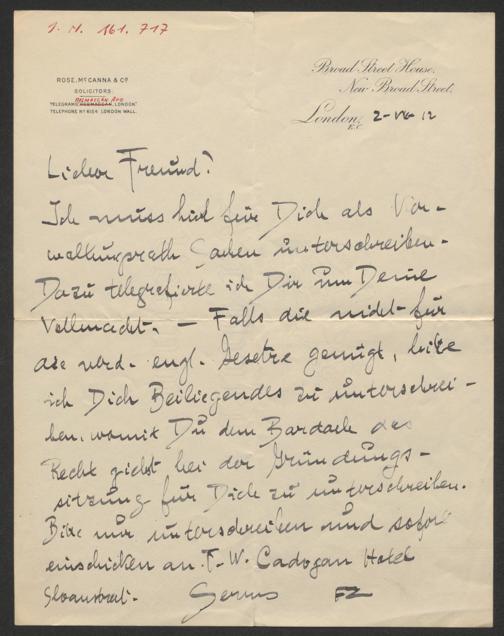 I. N. 161.717
ROSE, McCANNA & Co
SOLICITORS.
TELEGRAMS LONDON"
TELEPHONE No 8154 LONDON WALL.
Broad Street House,
New Broad Street,
London, 2-VII-12
E.C.
Lieber Freund!
Ich muss hier für Dich als Ver-
waltungsrath Sachen unterschreiben.
Dazu telegrafierte ich Dir um Deine
Vollmacht. — Falls die nicht für
die engl. Gesetze genügt, bitte
ich Dich Beiliegendes zu unterschrei-
ben, womit Du dem Bardach das
Recht giebst bei der Gründungs-
sitzung für Dich zu unterschreiben.
Bitte nur unterschreiben und sofort
einschicken an T. W. Cadogan Hotel
Sloanstreet. Servus FZ